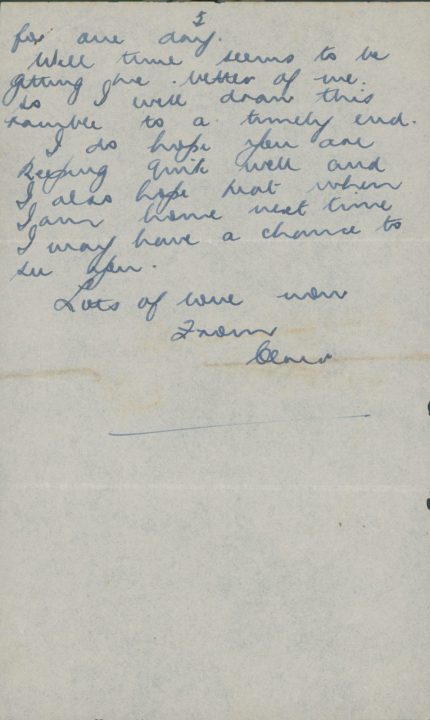 5
for one day.
Well time seems to be
getting the better of me.
So I will draw this
ramble to a timely end.
I do hope you are
keeping quite well and
I also hope that when
I am home next time
I may have a chance to
see you.
Lots of love now
From